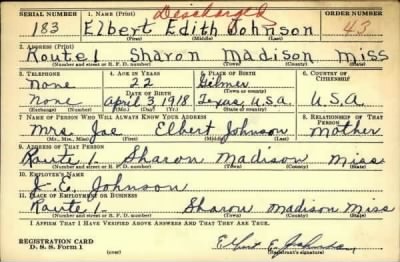 SERIAL NUMBER 1. NAME (Print) Discharged ORDER NUMBER
183 Elbert Edith Johnson 43
(First) (Middle) (Last)
2. ADDRESS (Print)
Route 1 Sharon Madison Miss
(Number and street or R. F. D. number) (Town) (County) (State)
3. TELEPHONE 4. AGE IN YEARS 5. PLACE OF BIRTH 6. COUNTRY OF CITIZENSHIP
None 22 Gilmer
DATE OF BIRTH (Town or county)
None April 3, 1918 Texas, U.S.A. U.S.A.
(Exchange) (Number) (Mo.) (Day) (Yr.) (State or country)
7. NAME OF PERSON WHO WILL ALWAYS KNOW YOUR ADDRESS 8. RELATIONSHIP OF THAT PERSON
Mrs. Joe Elbert Johnson Mother
(Mr., Mrs., Miss) (First) (Middle) (Last)
9. ADDRESS OF THAT PERSON
Route 1. Sharon Madison Miss
(Number and street or R. F. D. number) (Town) (County) (State)
10. EMPLOYER'S NAME
J. E. Johnson
11. PLACE OF EMPLOYMENT OR BUSINESS
Route 1. Sharon Madison Miss
(Number and street or R. F. D. number) (Town) (County) (State)
I AFFIRM THAT I HAVE VERIFIED ABOVE ANSWERS AND THAT THEY ARE TRUE.
REGISTRATION CARD
D. S. S. Form 1 (over) Elbert E. Johnson
(Registrant's signature)